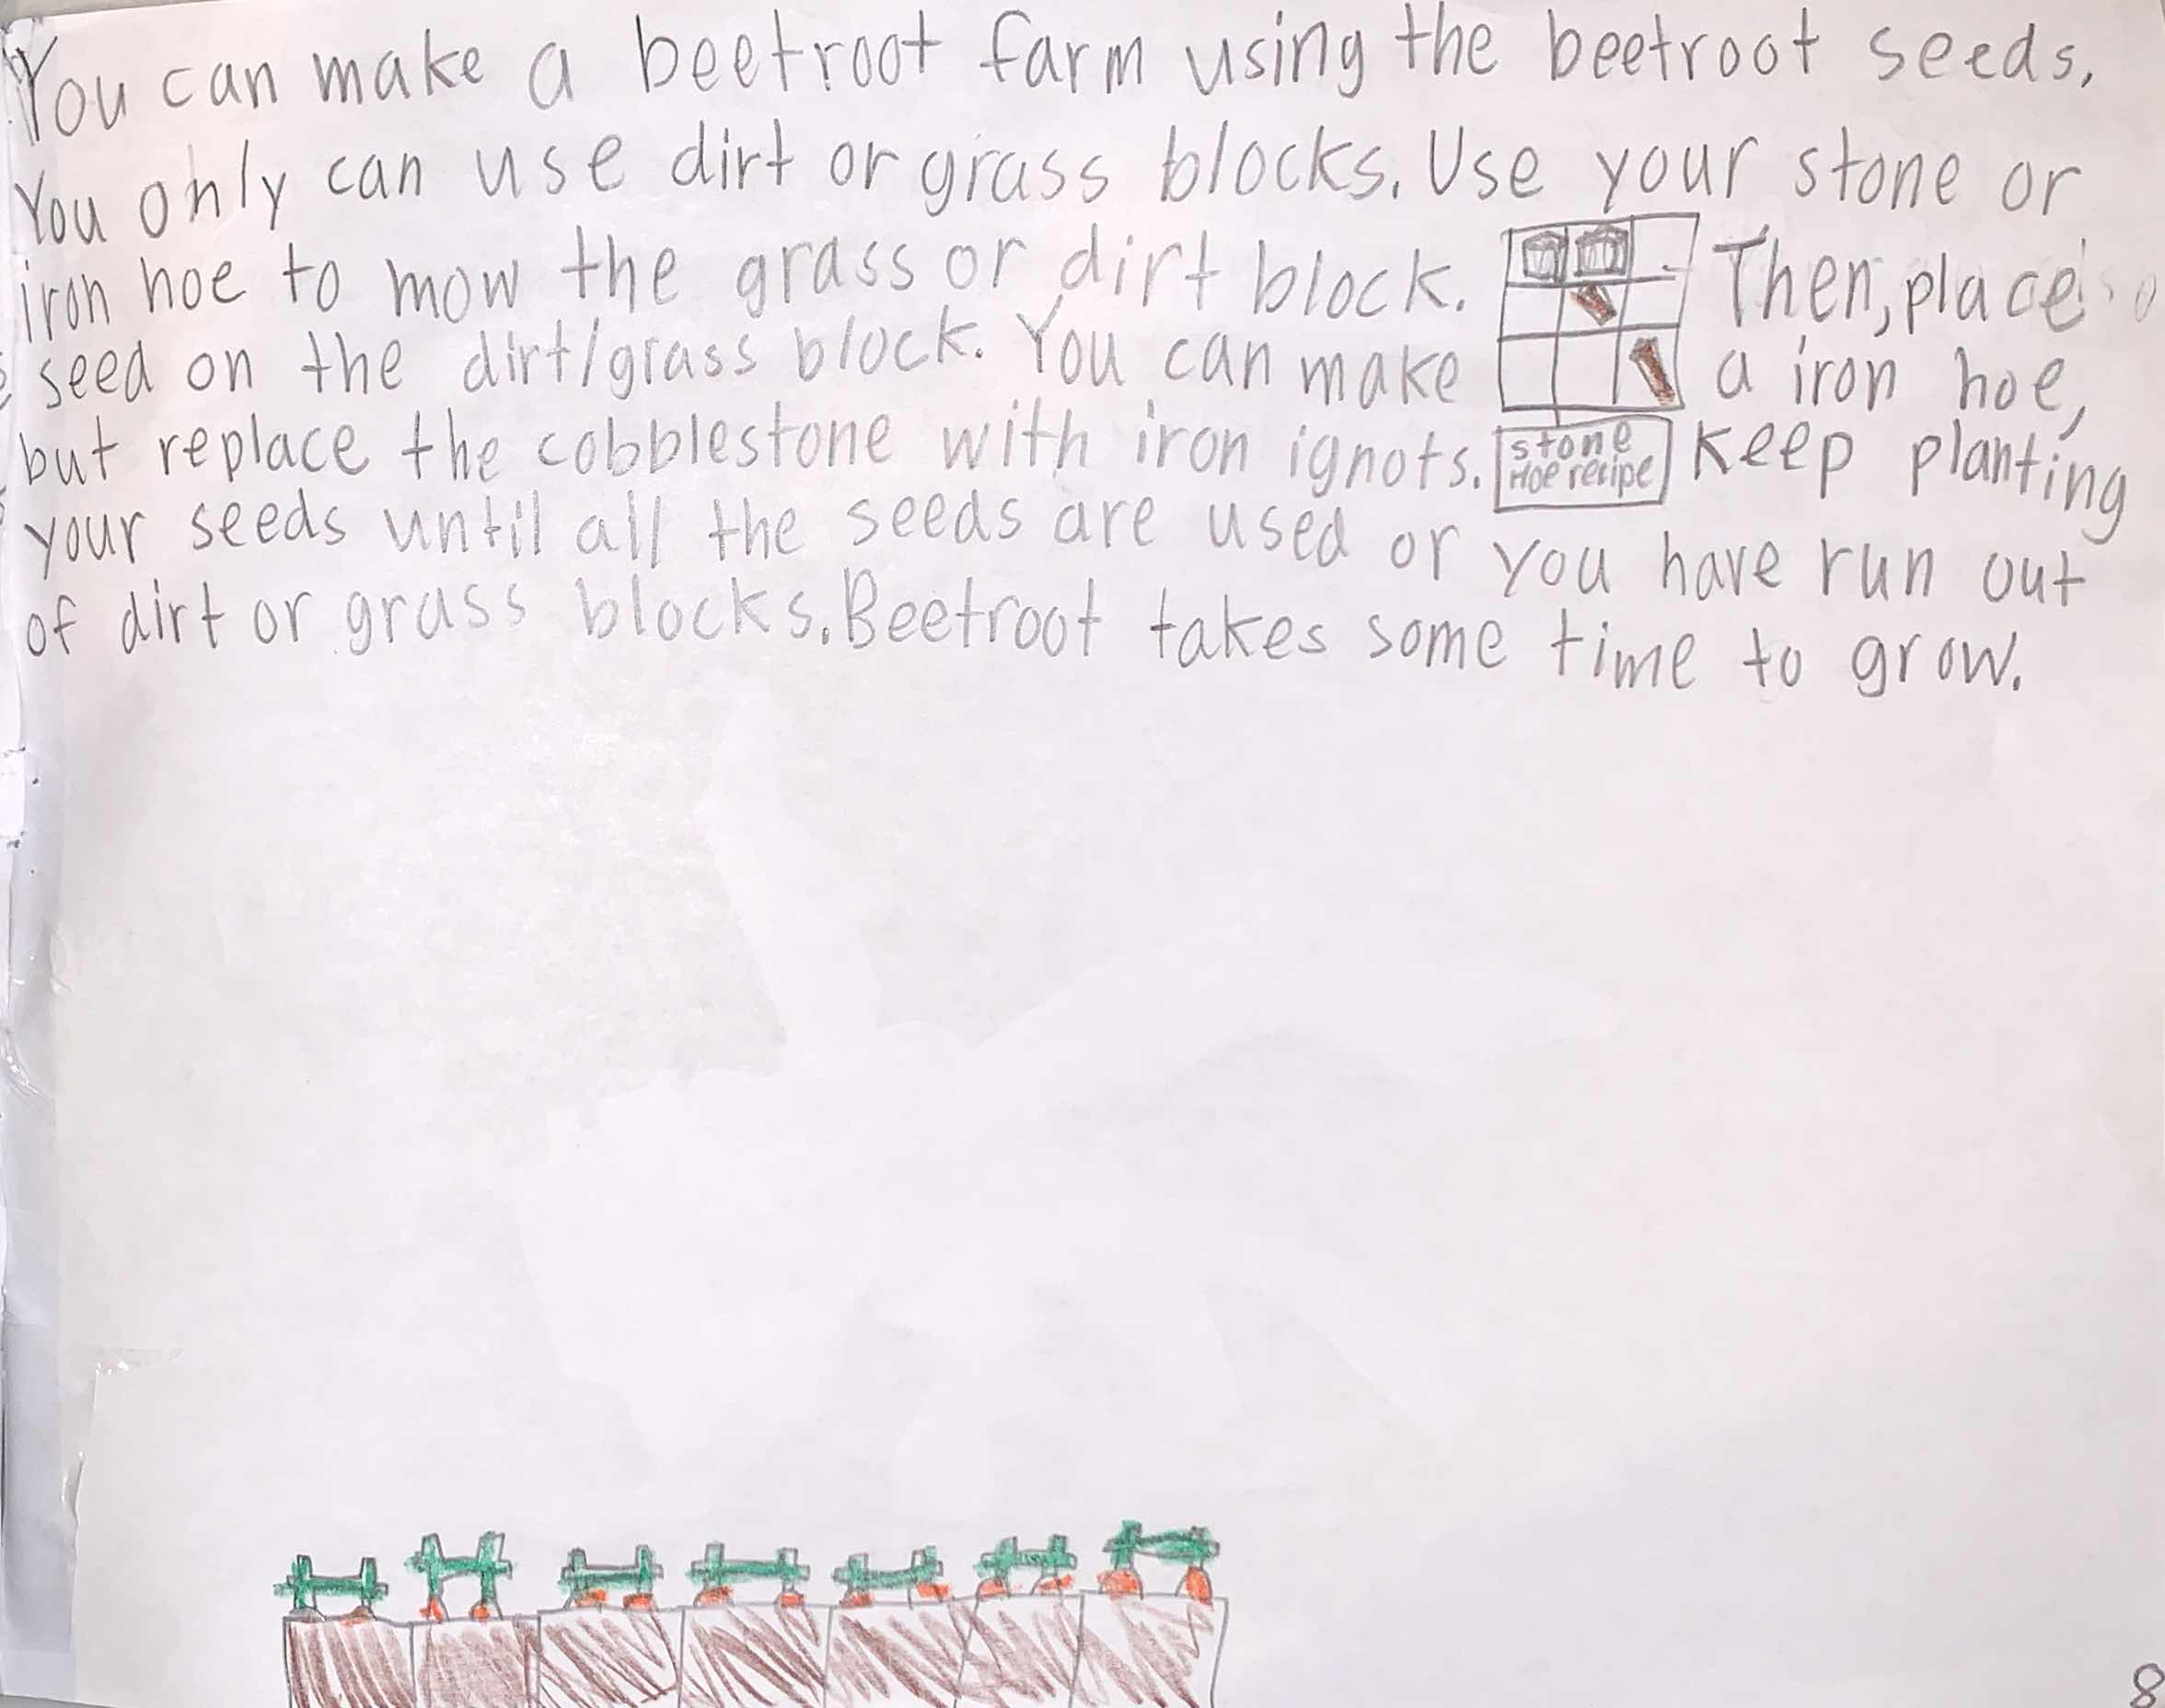 You can make a beetroot farm using the beetroot seeds.
You only can use dirt or grass blocks. Use your stone or
iron hoe to mow the grass or dirt block. Then, place
seed on the dirt/grass block. You can make a iron hoe,
but replace the cobblestone with iron ignots. Keep planting
stone
Hoe recipe
your seeds until all the seeds are used or you have run out
of dirt or grass blocks. Beetroot takes some time to grow.
8